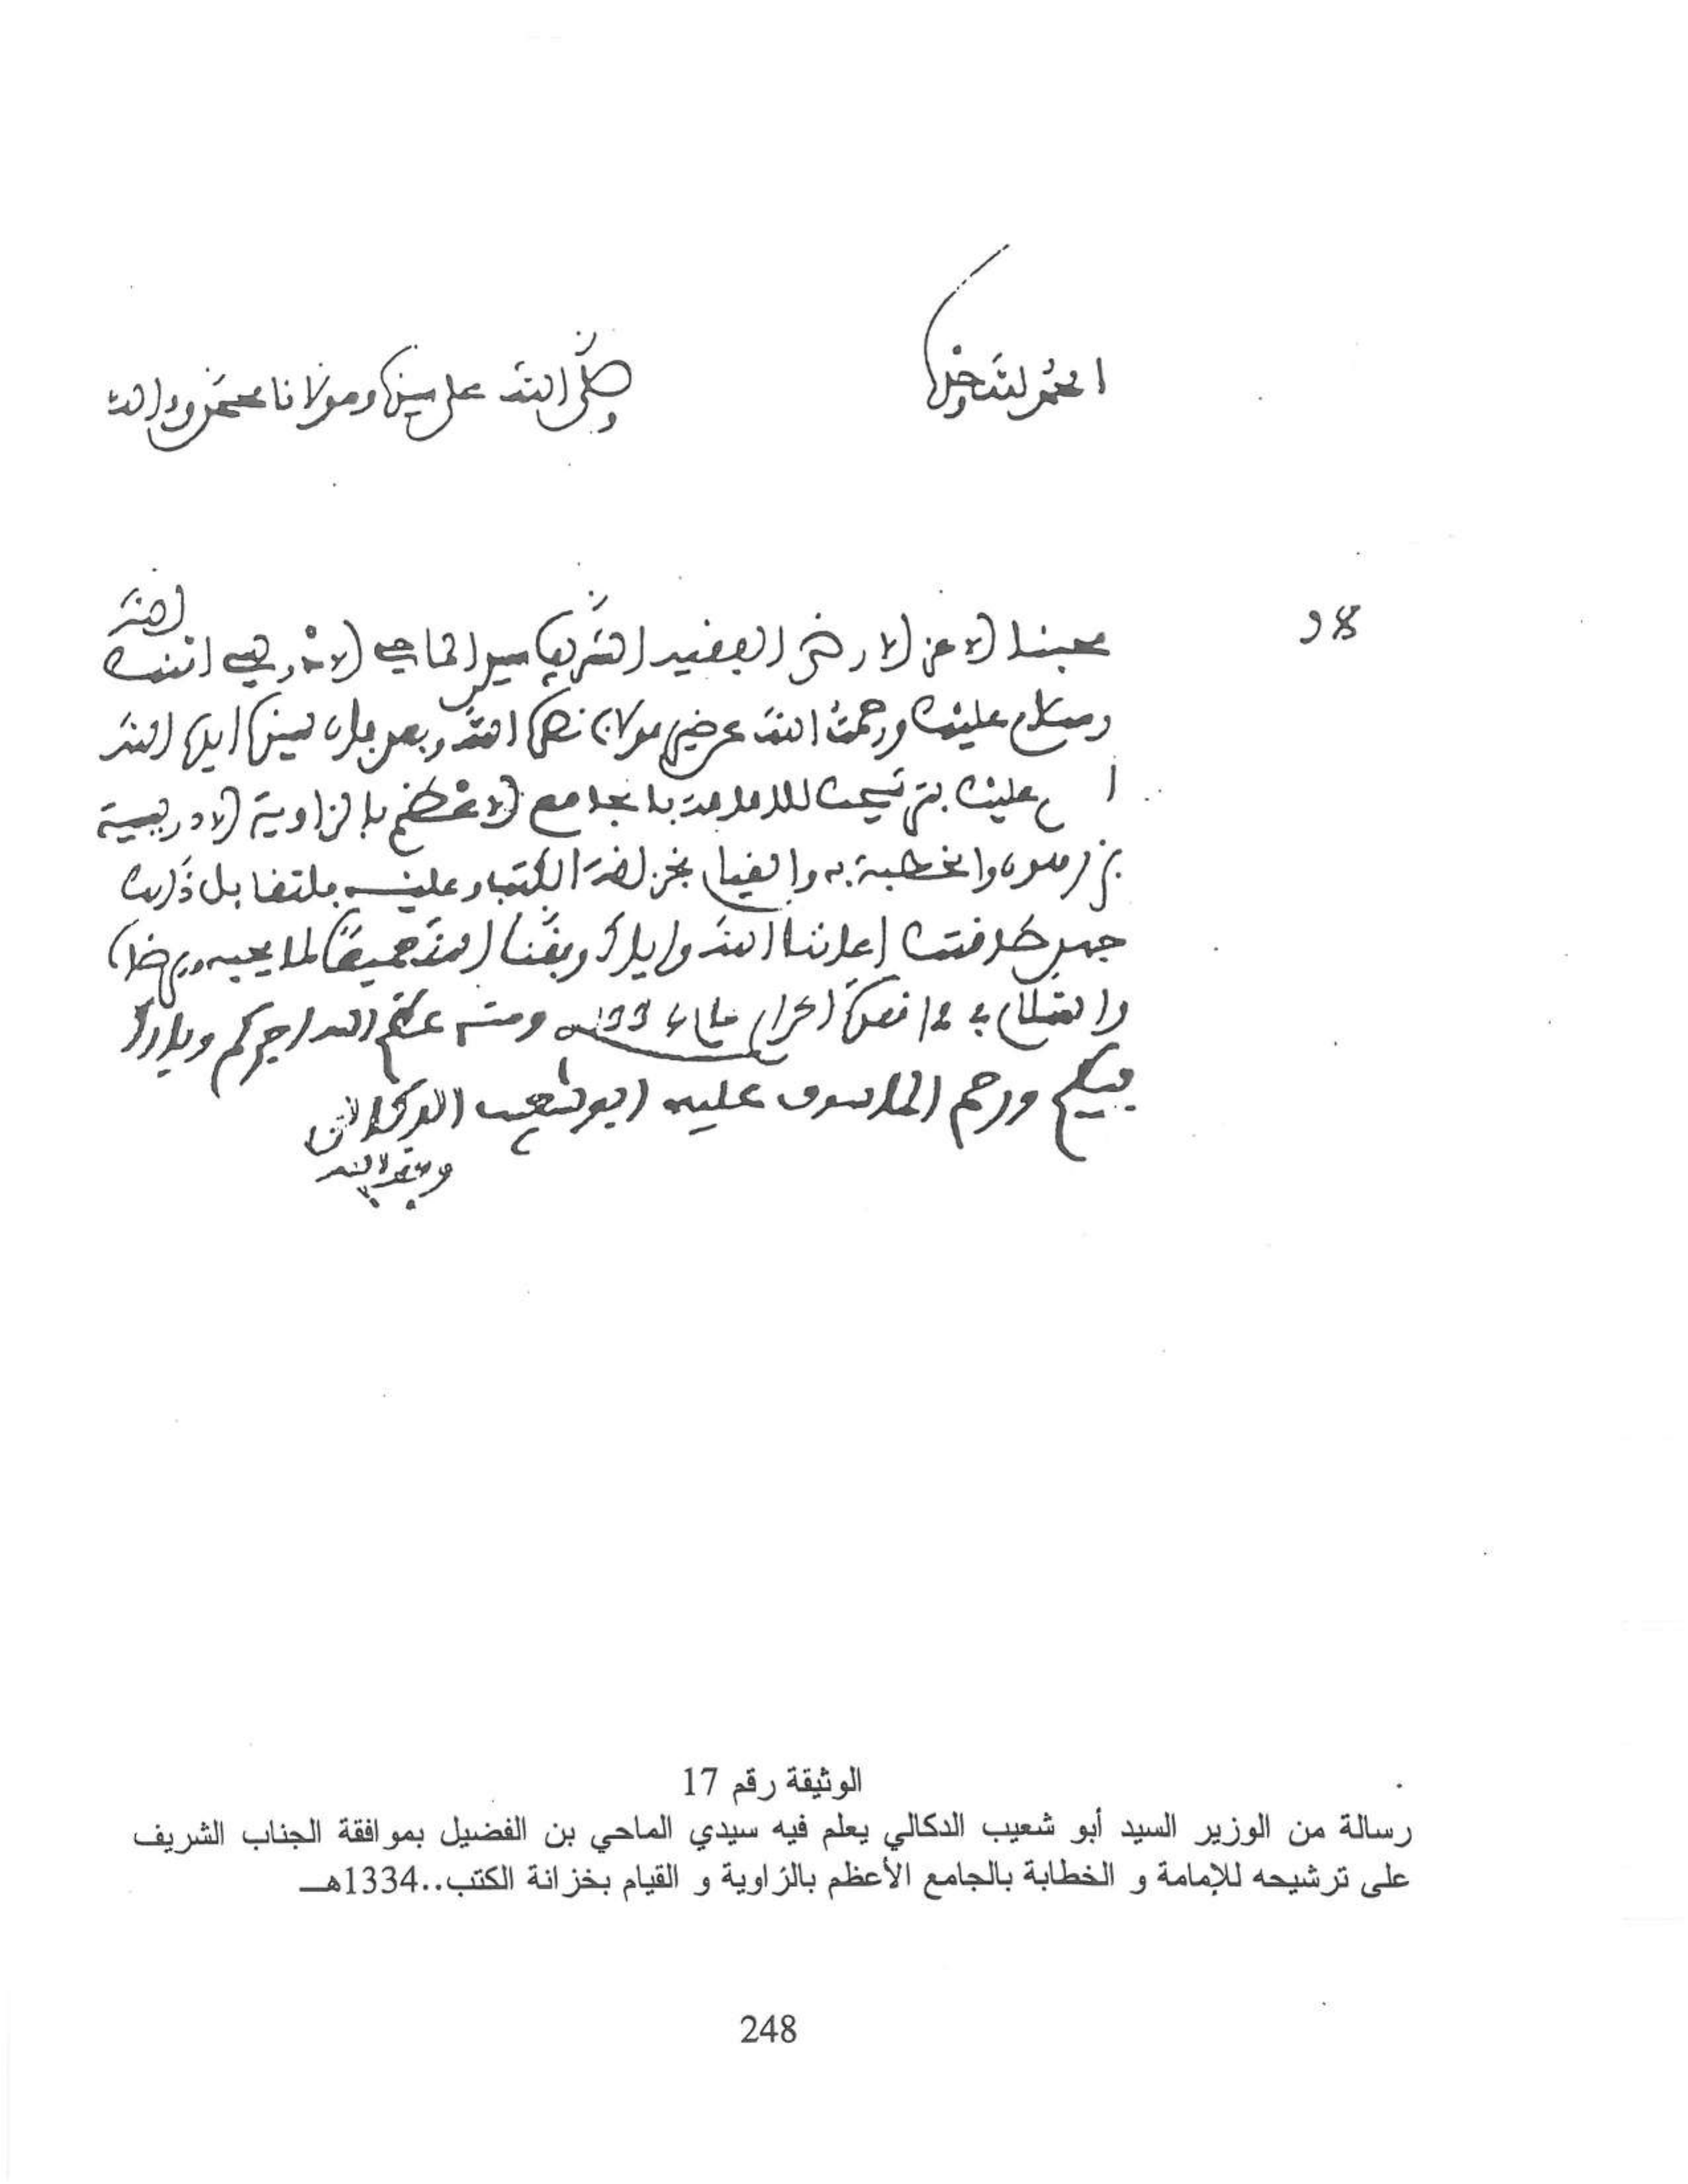 الحمد لله وحده
وصلى الله على سيدنا ومولانا محمد وءاله
محبنا الاعز الارضى الفقيه الشريف سيدي الماحي الادريسي امنك الله
وسلام عليك ورحمت الله عن خير مولانا نصره الله وبعد فان سيدنا ايده الله
عليك بترشيحك للامامة بالجامع الاعظم بالزاوية الادريسية
بزرهون والخطبة به والقيام بخزانة الكتب وعليه فلتقابل ذلك
جهد طاقتك اعاننا الله واياك ووفقنا الله جميعا لما يحبه ويرضاه
والسلام في 12 قعدة الحرام عام 1334 ومنه عظم الله اجركم وبارك
فيكم ورحم عليه ابو شعيب الدكالي
وفقه الله
الوثيقة رقم 17
رسالة من الوزير السيد أبو شعيب الدكالي يعلم فيه سيدي الماحي بن الفضيل بموافقة الجناب الشريف
على ترشيحه للإمامة و الخطابة بالجامع الأعظم بالزاوية و القيام بخزانة الكتب..1334هـ
248